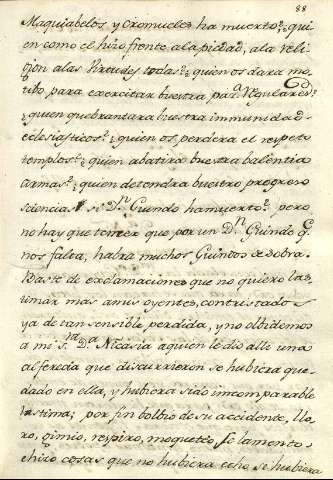 88
Maquiabelos y Oromueles ha muerto? ¿qui
en como el hizo frente a la piedad, a la reli
gion a las Virtudes todas? ¿quien os dara mo
tibo para exercitar buestra pax.ª Regulares?
¿quien quebrantara buestra immunidad
eclesiasticos? ¿quien os perdera el respeto
templos? ¿quien abatira buestra balentia
armas? ¿quien detendra buestro progreso
sciencias? Dⁿ Guindo ha muerto? pero
no hay que temer que por un Dⁿ Guindo q.
nos falta, habra muchos Guindos de sobra.
Baste de exclamaciones que no quiero las
timar mas a mis oyentes, contristados
ya de tan sensible perdida, y no olbidemos
a mi S.ra D.ª Nicasia a quien le dio alli una
alferecia que discurrieron se hubiera que
dado en ella, y hubiera sido incomparable
lastima; por fin bolbio de su accidente, llo
ro, gimio, respiro, moqueteo, se lamento
e hizo cosas que no hubiera echo se hubiera